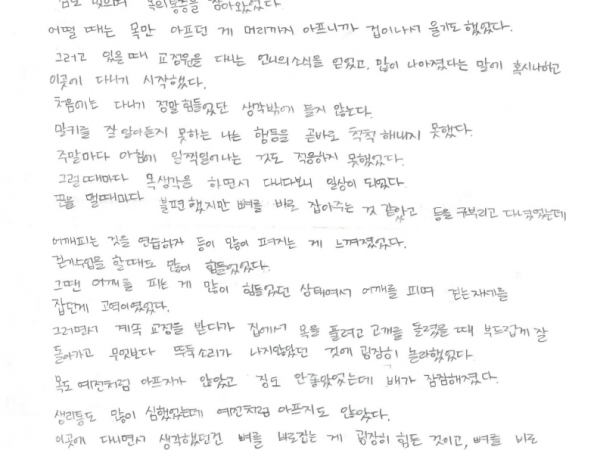 목의통증을 참아왔었다.
어떨 때는 목만 아프던 게 머리까지 아프니까 겁이나서 울기도 했었다.
그러고 있을때 교정원을 다니는 언니의소식을 얻었고, 많이 나아졌다는 말에 혹시나하고
이곳에 다니기 시작했다.
처음에는 다니기 정말힘들었단 생각밖에 들지 않는다.
말귀를 잘알아듣지 못하는 나는 행동을 곧바로 척척해내지 못했다.
주말마다 아침에 일찍일어나는 것도 적응하지 못했었다.
그럴때마다 목생각을 하면서 다니다보니 일상이 되었다.
끈을 멜때마다 불편했지만 뼈를 바로 잡아주는 것 같았고 등을 구부리고 다녔었는데
어깨피는 것을 연습하자 등이 많이 펴지는 게 느껴졌었다.
걷기수업를 할때도 많이 힘들었었다.
그땐 어깨를 피는 게 많이 힘들었던 상태여서 어깨를 피며 걷는자세를
잡는게 고역이었었다.
그러면서 계속 교정을 받다가 집에서 목를 풀려고 고개를 돌렸을 때 부드럽게 잘
돌아가고 무엇보다 뚜둑소리가 나지않았던 것에 굉장히 놀라했었다.
목도 예전처럼 아프지가 않았고 잠도 안좋았었는데 배가 잠잠해졌다.
생리통도 많이 심했었는데 예전처럼 아프지도 않았다.
이곳에 다니면서 생각했던건 뼈를 바로잡는 게 굉장히 힘든 것이고, 뼈를 바로